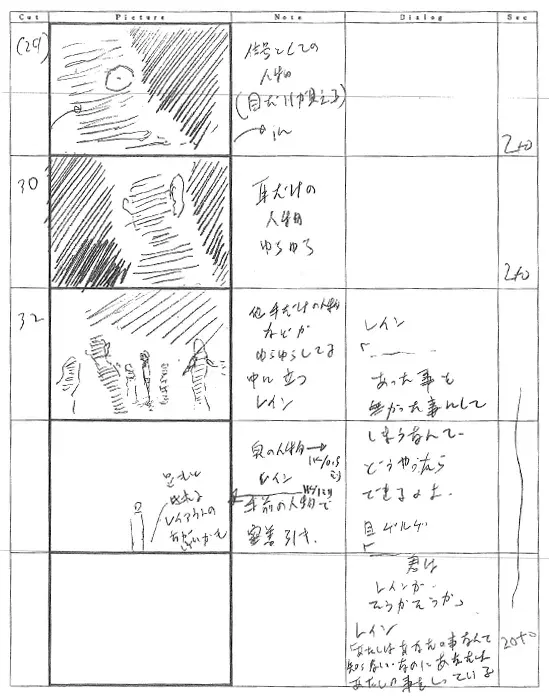 Cut Picture Note Dialog Sec
(29)
信号としての
人物
(目だけが見える)
in
2+0
30
耳だけの
人物
ゆらゆら
2+0
32
人物
などが
ゆらゆらしてる
中に立つ
レイン
レイン
「
あった事も
無かった事にして
しまうなんて
どうやったら
できるのよ。
奥の人物
レイン
手前の人物で
密着引き.
レイアウトの
「
君は
レインか
そうかそうか」
レイン
「あたしはあなたの事なんて
知らないなのにあなたは
あたしの事をしっている
20+0